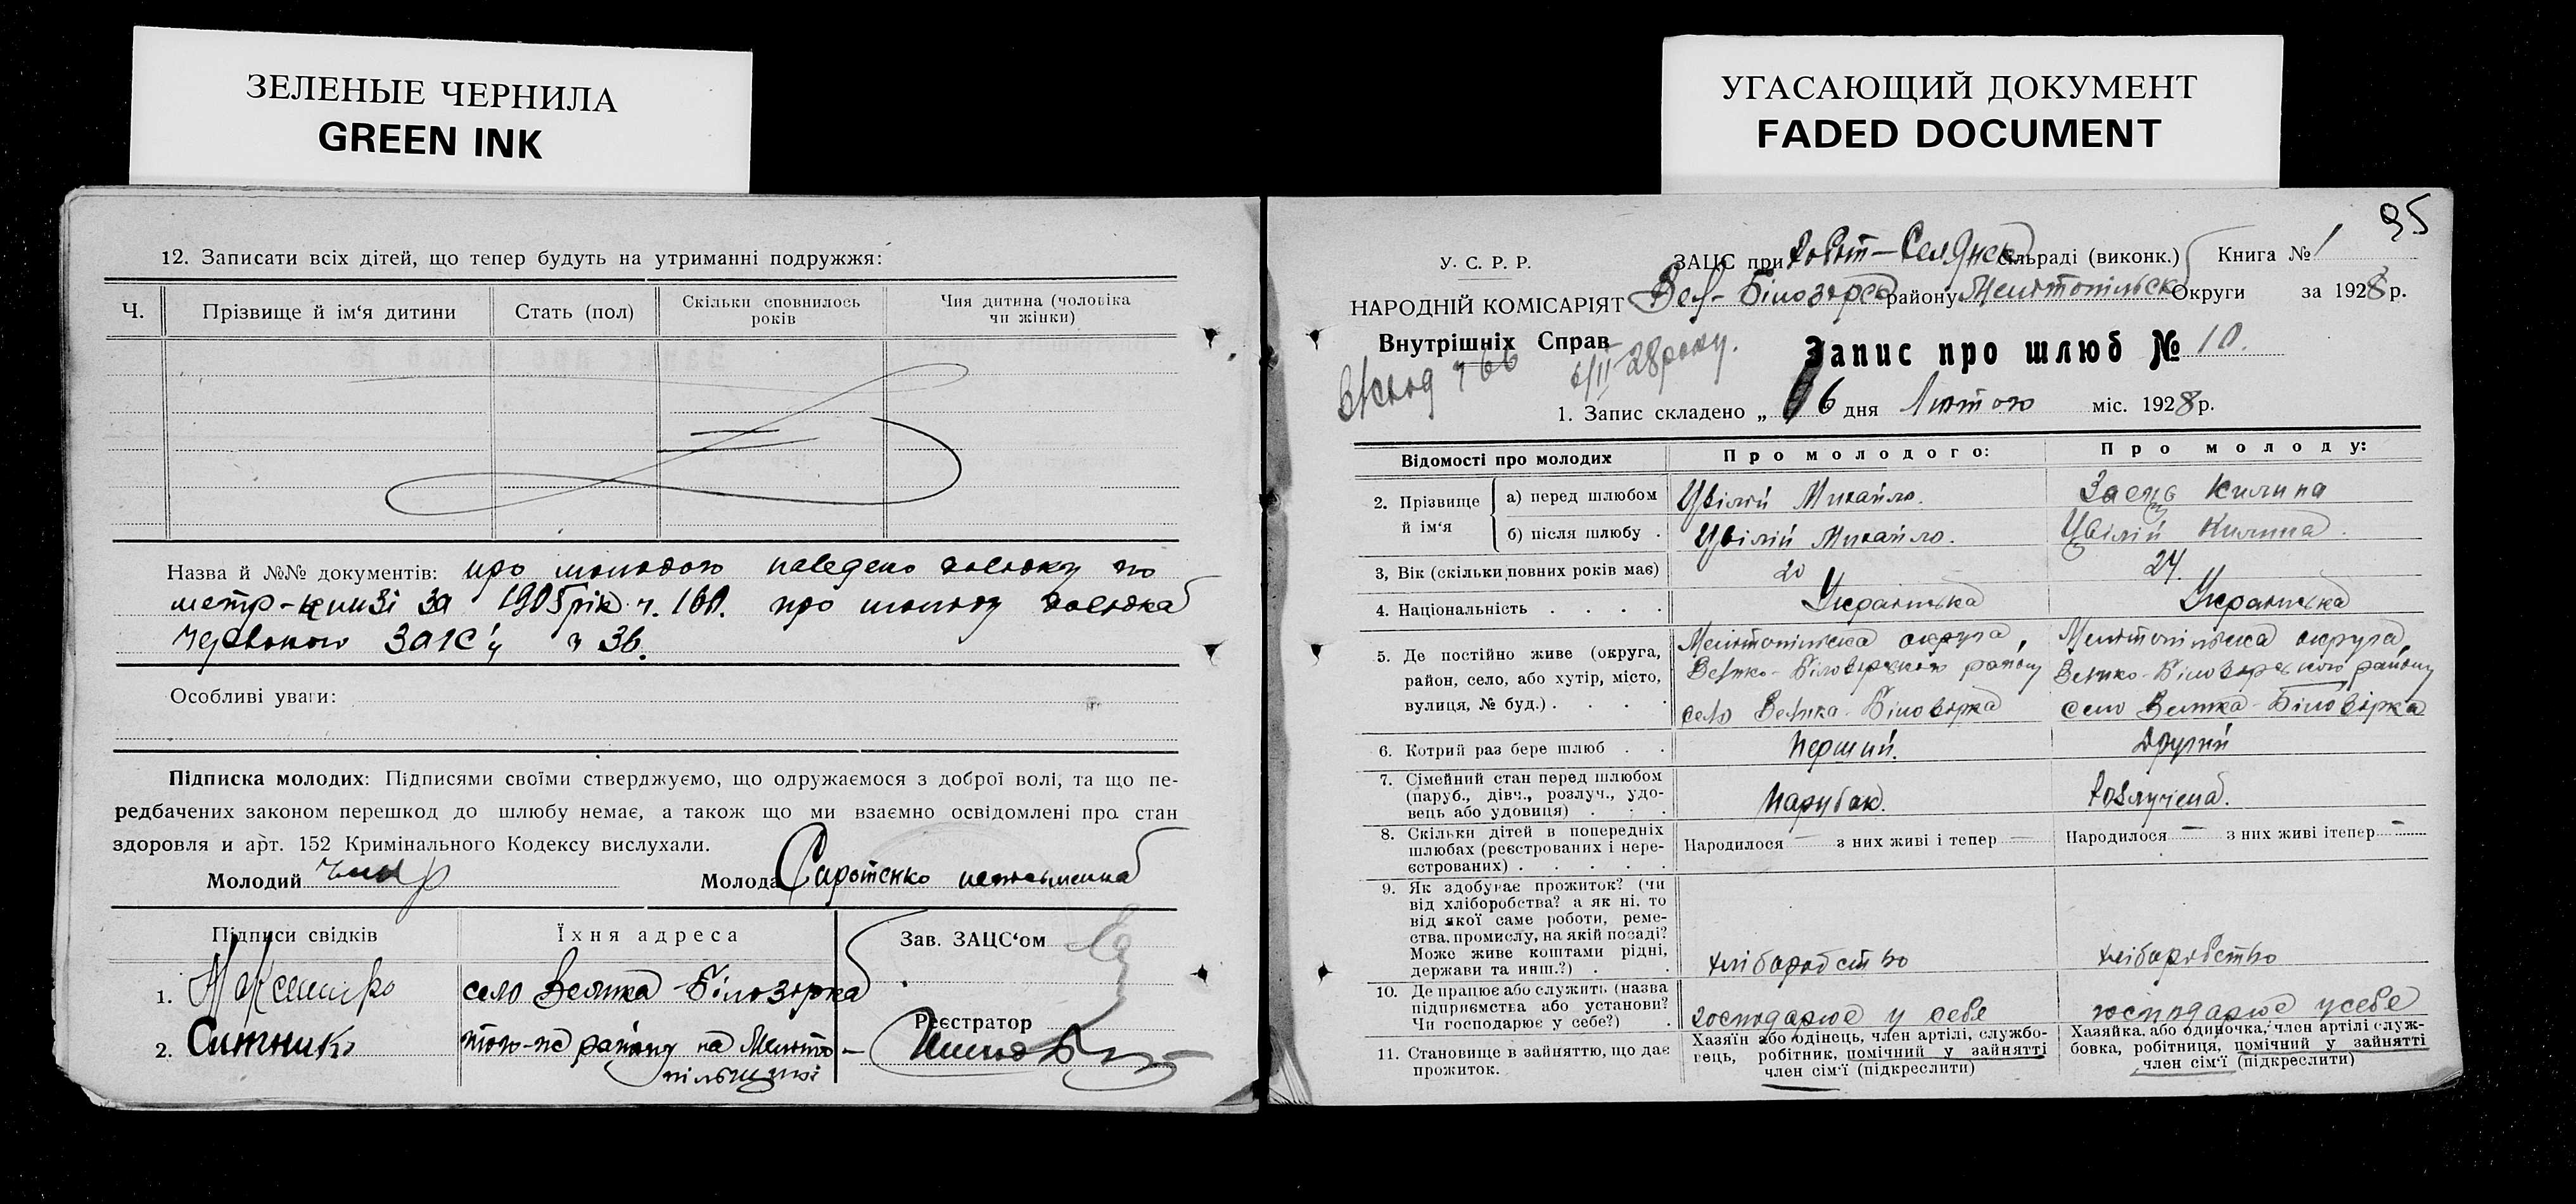 ЗЕЛЕНЫЕ ЧЕРНИЛА
GREEN INK
УГАСАЮЩИЙ ДОКУМЕНТ
FADED DOCUMENT
12. Записати всіх дітей, що тепер будуть на утриманні подружжя:
Ч. Прізвище й ім‘я дитини Стать (пол) Скільки сповнилось років Чия дитина (чоловіка чи жінки)
Назва й №№ документів: про молодого наведено довідку по
метр-книзі за 1905 рік ч. 160. про молоду довідка
Червоного ЗАГС'у ч 36.
Особливі уваги:
Підписка молодих: Підписями своїми стверджуємо, що одружаємося з доброї волі, та що пе-
редбачених законом перешкод до шлюбу немає, а також що ми взаємно освідомлені про стан
здоровля и арт. 152 Кримінального Кодексу вислухали.
Молодий Молода Сиротенко неписьменна
Підписи свідків Їхня адреса Зав. ЗАЦС‘ом
1. село Велика Білозірка
Реєстратор
2. Ситник того-же району на Меліто-
пільщині
95
У. С. Р. Р. ЗАЦС при Робіт-Селянськ сільраді (виконк.) Книга № 1
НАРОДНІЙ КОМІСАРІЯТ Вел-Білозірськ району Мелітопільськ Округи за 1928 р.
Внутрішніх Справ
6/II-28 року.
Запис про шлюб № 10.
1. Запис складено „ 6 дня Лютого міс. 1928 р.
Відомості про молодих Про молодого: Про молоду:
2. Прізвище й ім‘я а) перед шлюбом Цвілий Михайло. Заєць Килина
б) після шлюбу . Цвілій Михайло. Цвілій Килина.
3, Вік (скільки повних років має) 20 24
4. Національність . . . . Українська Українська
5. Де постійно живе (округа, район, село, або хутір, місто, вулиця, № буд.) . . . . Мелітопільська округа, Мелітопільська округа,
Велико-Білозірського району Велико-Білозірського району
село Велика-Білозірка село Велика-Білозірка
6. Котрий раз бере шлюб . . Перший. Другий
7. Сімейний стан перед шлюбом (паруб., дівч., розлуч., удо-
вець або удовиця) . . . Парубок. Розлучена.
8. Скільки дітей в попередніх шлюбах (реєстрованих і нере-
єстрованих) . . . . . Народилося — з них живі і тепер — Народилося — з них живі ітепер —
9. Як здобуває прожиток? (чи
від хліборобства? а як ні, то
від якої саме роботи, реме-
ства, промислу, на якій посаді?
Може живе коштами рідні,
держави та инш.?) . . хліборобство хліборобство
10. Де працює або служить (назва
підприємства або установи?
Чи господарює у себе?) . господарює у себе господарює у себе
11. Становище в зайняттю, що дає
прожиток.
Хазяїн або одінець, член артілі, службо-
вець, робітник, помічний у зайнятті
член сім‘ї (підкреслити)
Хазяйка, або одиночка, член артілі служ-
бовка, робітниця, помічний у зайнятті
член сім‘ї (підкреслити)